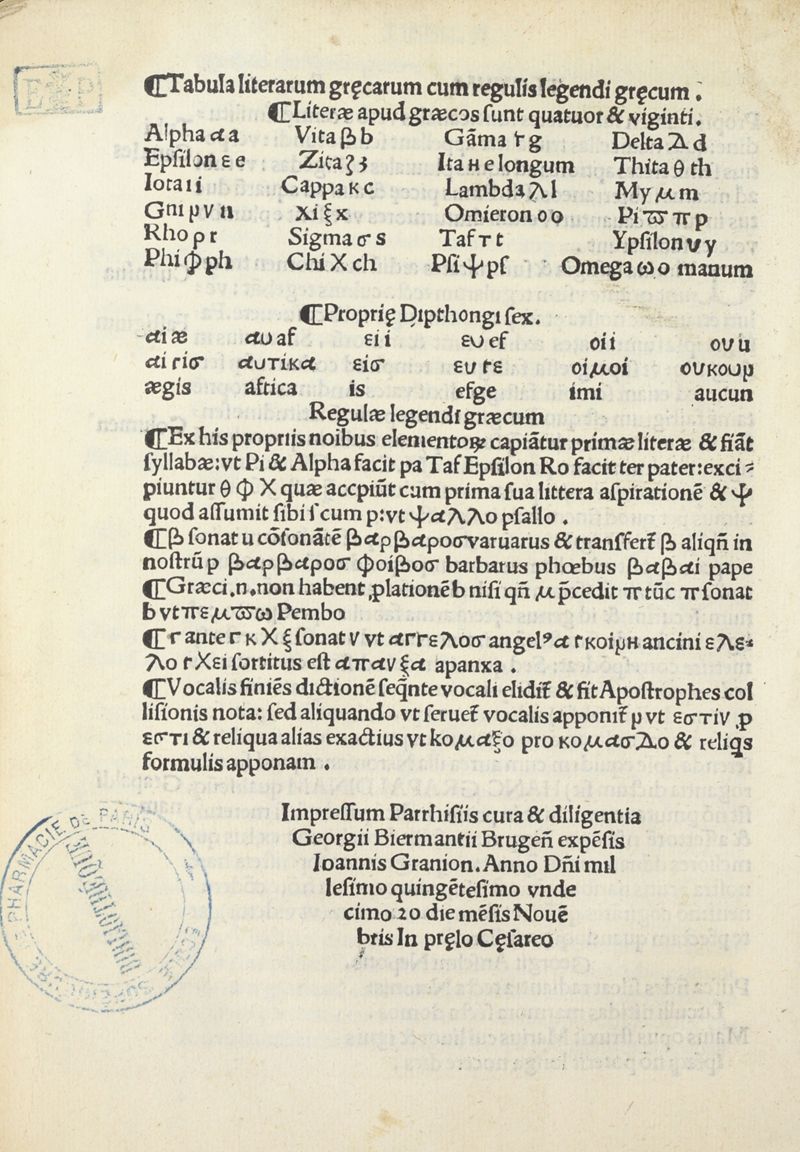 E P
¶Tabula literarum gręcarum cum regulis legendi gręcum .
¶Literæ apud græcos ſunt quatuor & viginti.
Alpha α a Vita β b Gāma ⲅ g Delta λ d
Epſilon ε e Zita ʒ Ita н e longum Thita θ th
Iota ι i Cappa κ c Lambda λ l My μ m
Gni ρ ν n Xi ξ x Omicron o o Pi ϖ π p
Rho ρ r Sigma σ s Taf τ t Ypſilon υ y
Phi φ ph Chi X ch Pſi ψ pſ Omega ω o manum
¶Proprię Dipthongi ſex.
αι æ αυ af ει i ευ ef οι i ου u
αι γισ αυτικα εισ ευ γε οι μοι ουκουρ
ægis aftica is efge imi aucun
Regulæ legendi græcum
¶Ex his propriis noibus elementoꝝ capiātur primæ literæ & fiāt
ſyllabæ:vt Pi & Alpha facit pa Taf Epſilon Ro facit ter pater:exci⸗
piuntur θ φ X quæ accpiūt cum prima ſua littera aſpirationē & ψ
quod aſſumit ſibi ſ cum p:vt ψαλλο pſallo .
¶β ſonat u cōſonātē βαρβαροσ varuarus & tranſfert᷑ β aliqñ in
noſtrū p βαρβαροσ φοιβοσ barbarus phœbus βαβαι pape
¶Græci .n. non habent ꝓlationē b niſi qñ μ p̄cedit π tūc π ſonat
b vt πεμϖω Pembo
¶Γ ante Γ κ X ξ ſonat ν vt αΓΓελοσ angelꝰ αΓκοιρн ancini ελε⸗
λο ΓXει ſortitus eſt απανξα apanxa .
¶Vocalis finiēs dictionē ſeq̄nte vocali elidit᷑ & fit Apoſtrophes col
liſionis nota: ſed aliquando vt ſeruet᷑ vocalis apponit᷑ ρ vt εστιν ꝓ
εστι & reliqua alias exactius vt κομαξο pro κομασλο & reliq̨s
formulis apponam .
Impreſſum Parrhiſiis cura & diligentia
Georgii Biermantii Brugeñ expēſis
Ioannis Granion. Anno Dñi mil
leſimo quingēteſimo vnde
cimo 20 die mēſis Nouē
bris In pręlo Cęſareo
PHARMACIE DE PARIS